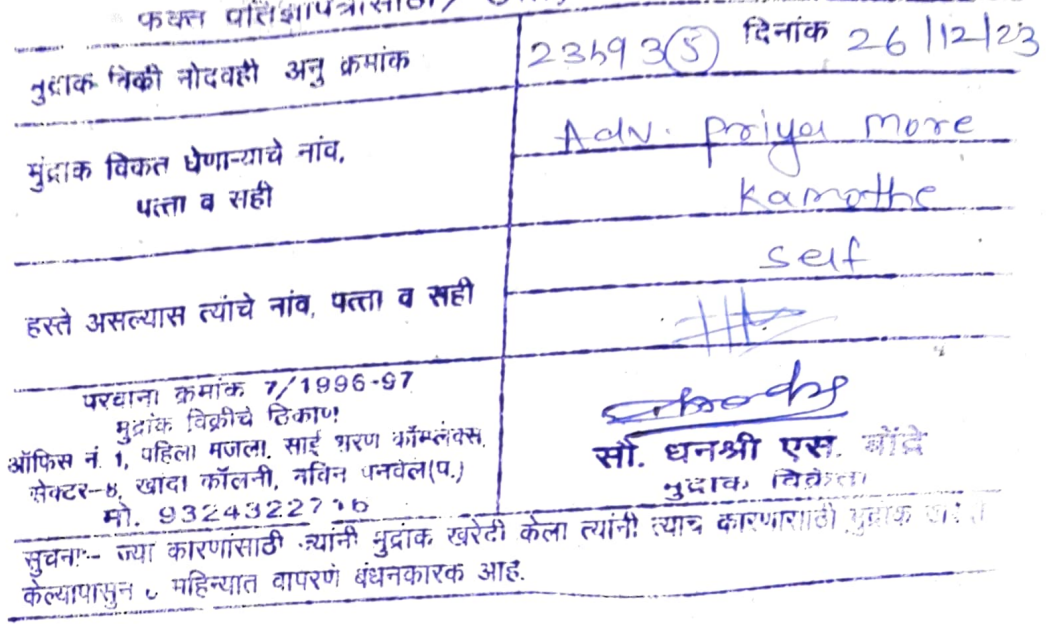 फक्त प्रतिज्ञापत्रासाठी/
मुद्रांक विक्री नोंदवही अनु क्रमांक 23593(5) दिनांक 26/12/23
मुंद्राक विकत घेणाऱ्याचे नांव,
पत्ता व सही
Adv. Priya More
Kamothe
हस्ते असल्यास त्यांचे नांव, पत्ता व सही
Self
परवाना क्रमांक 7/1996-97
मुद्रांक विक्रीचे ठिकाण
ऑफिस नं. 1, पहिला मजला, साई शरण कॉम्प्लेक्स,
सेक्टर-8, खांदा कॉलनी, नविन पनवेल(प.)
मो. 9324322716
सौ. धनश्री एस. बोंद्रे
मुद्रांक विक्रेता
सुचना:- ज्या कारणांसाठी ज्यांनी मुद्रांक खरेदी केला त्यांनी त्याच कारणासाठी मुद्रांक खरेदी
केल्यापासुन महिन्यात वापरणे बंधनकारक आहे.